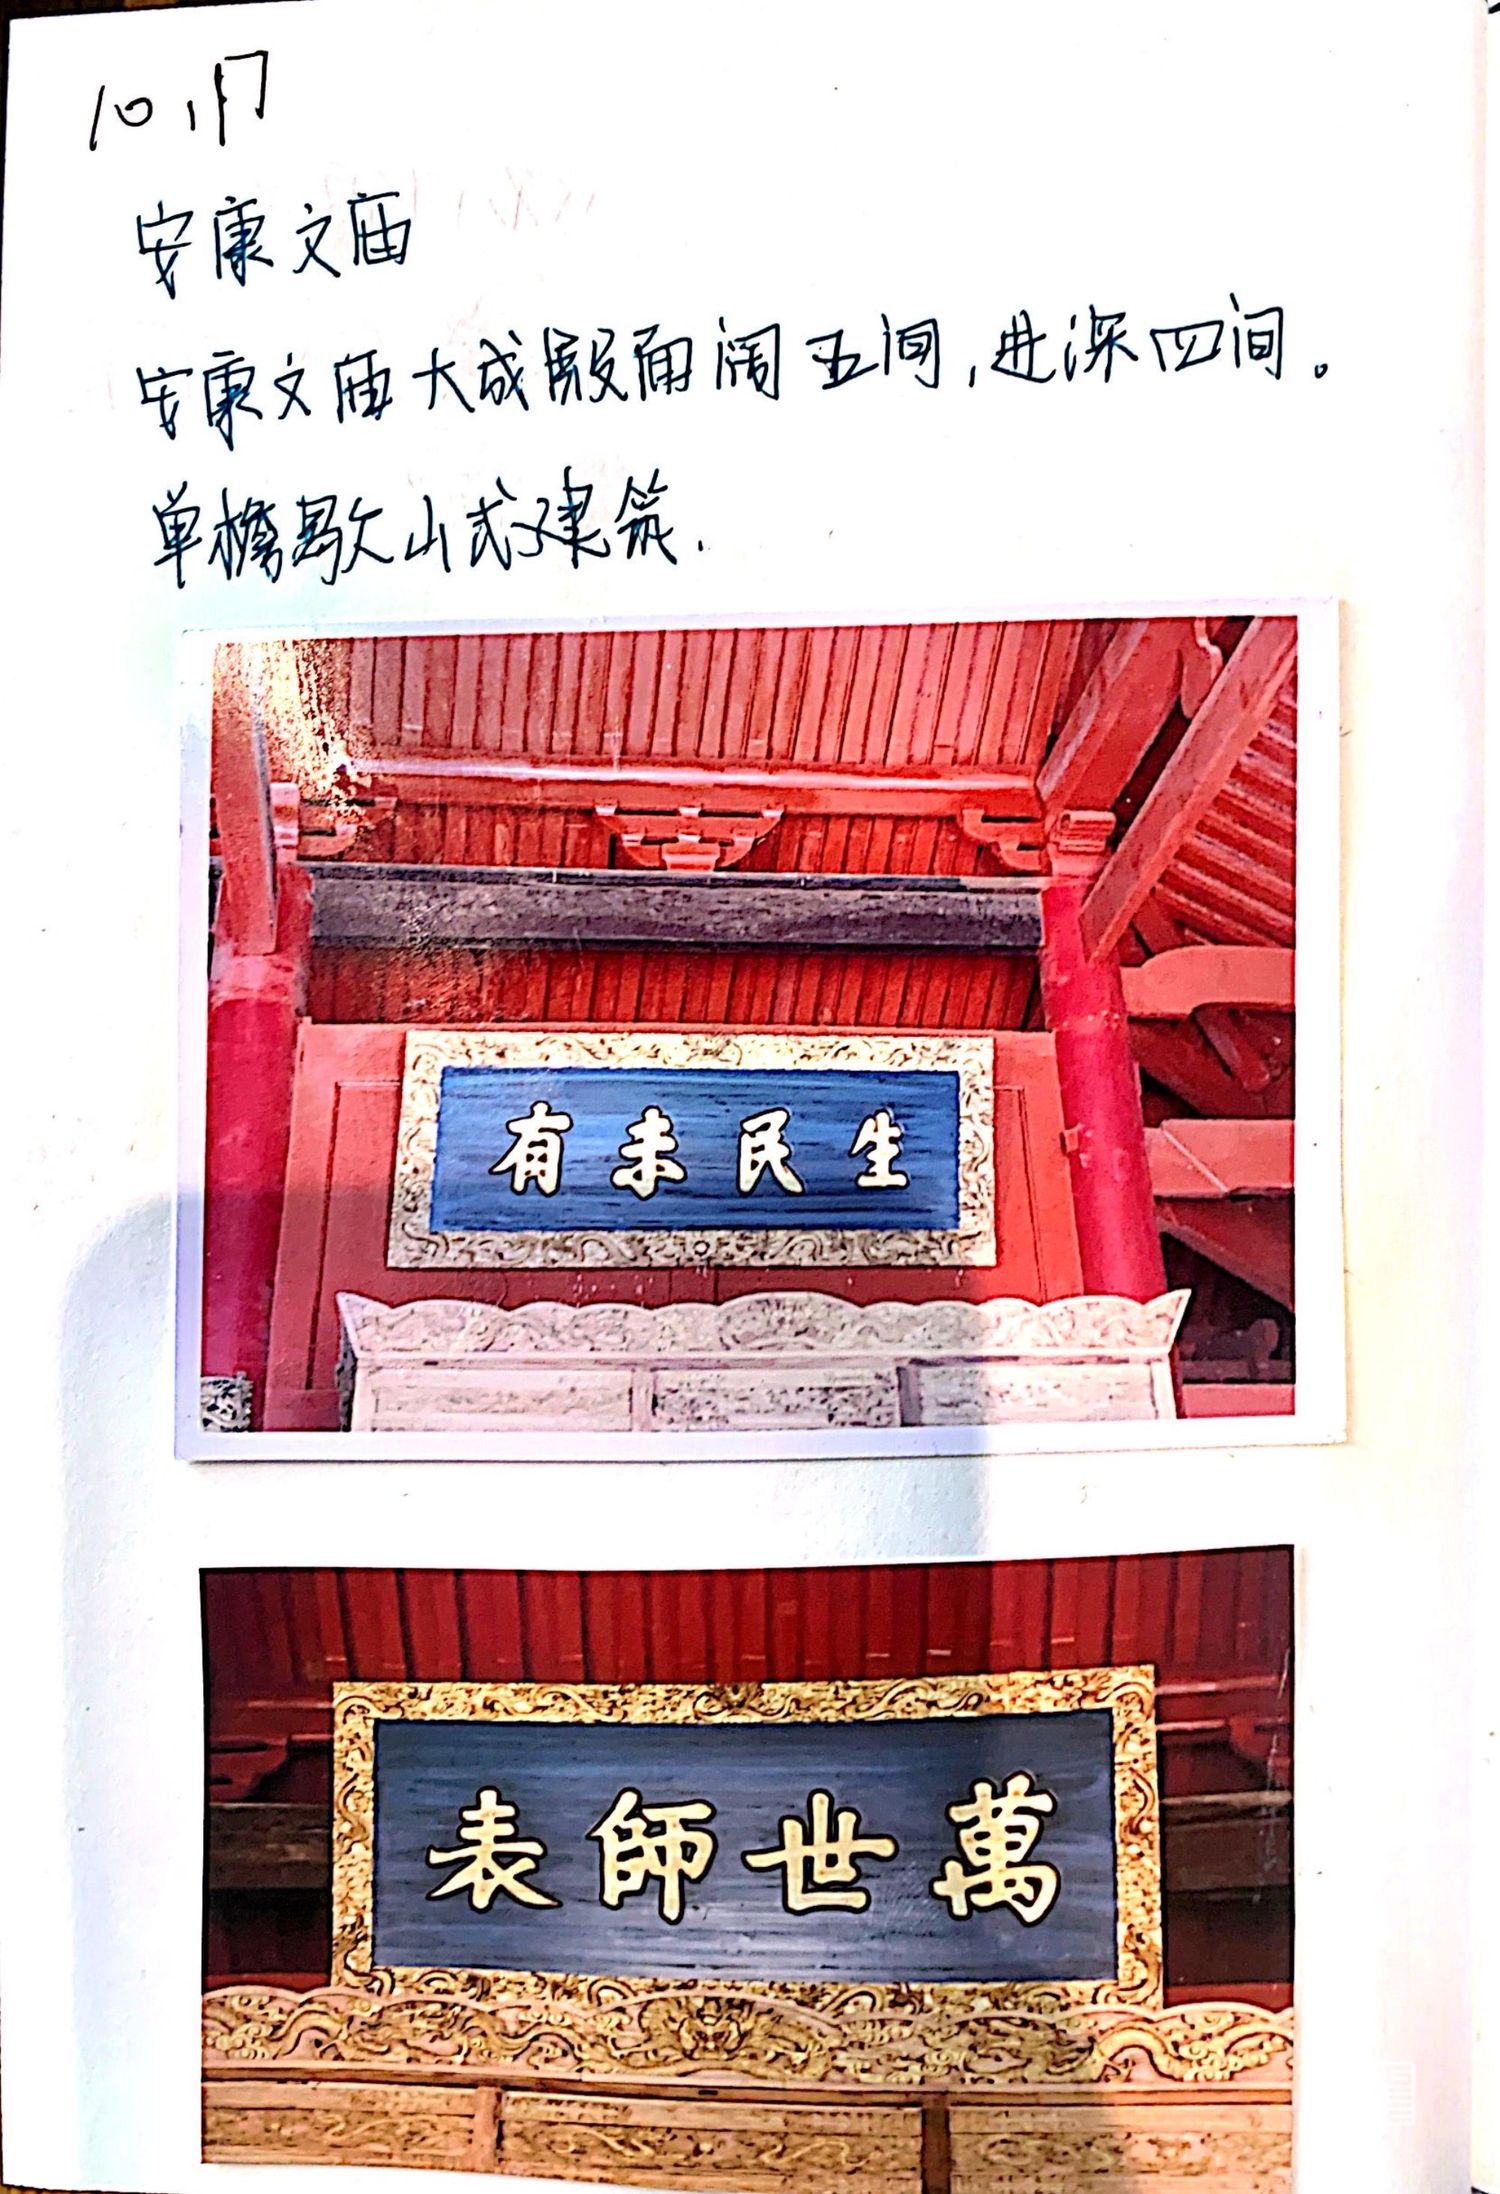 10.1日
安康文庙
安康文庙大成殿面阔五间,进深四间。
单檐歇山式建筑.
有未民生
表師世萬